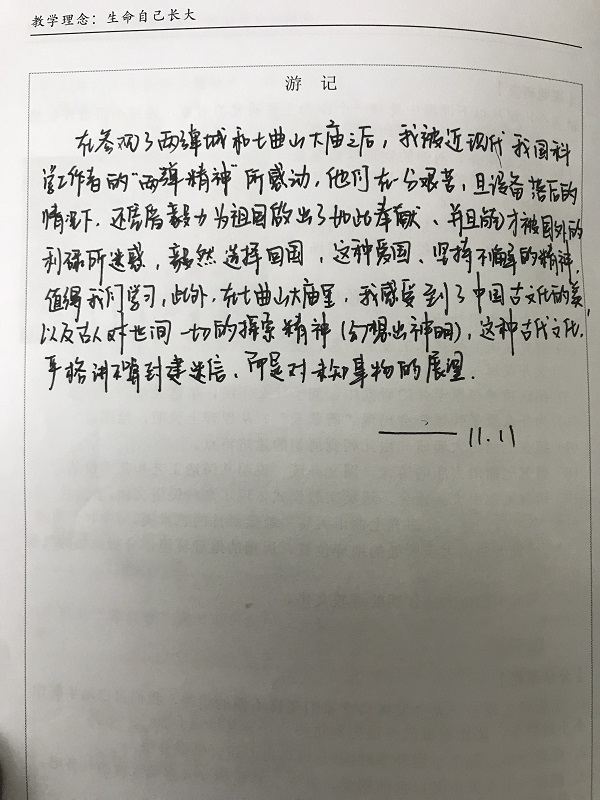 教学理念：生命自己长大
游 记
在参观了两弹城和七曲山大庙之后，我被近现代我国科
学工作者的“两弹精神”所感动，他们在十分艰苦，且设备落后的
情况下，还凭借毅力为祖国做出了如此奉献、并且的才被国外的
利禄所迷惑，毅然选择回国，这种爱国、坚持不懈的精神，
值得我们学习，此外，在七曲山大庙里，我感受到了中国古文化的美，
以及古人对世间一切的探索精神（幻想出神明），这种古代文化，
严格讲不算封建迷信、而是对未知事物的展望.
—— 11.11